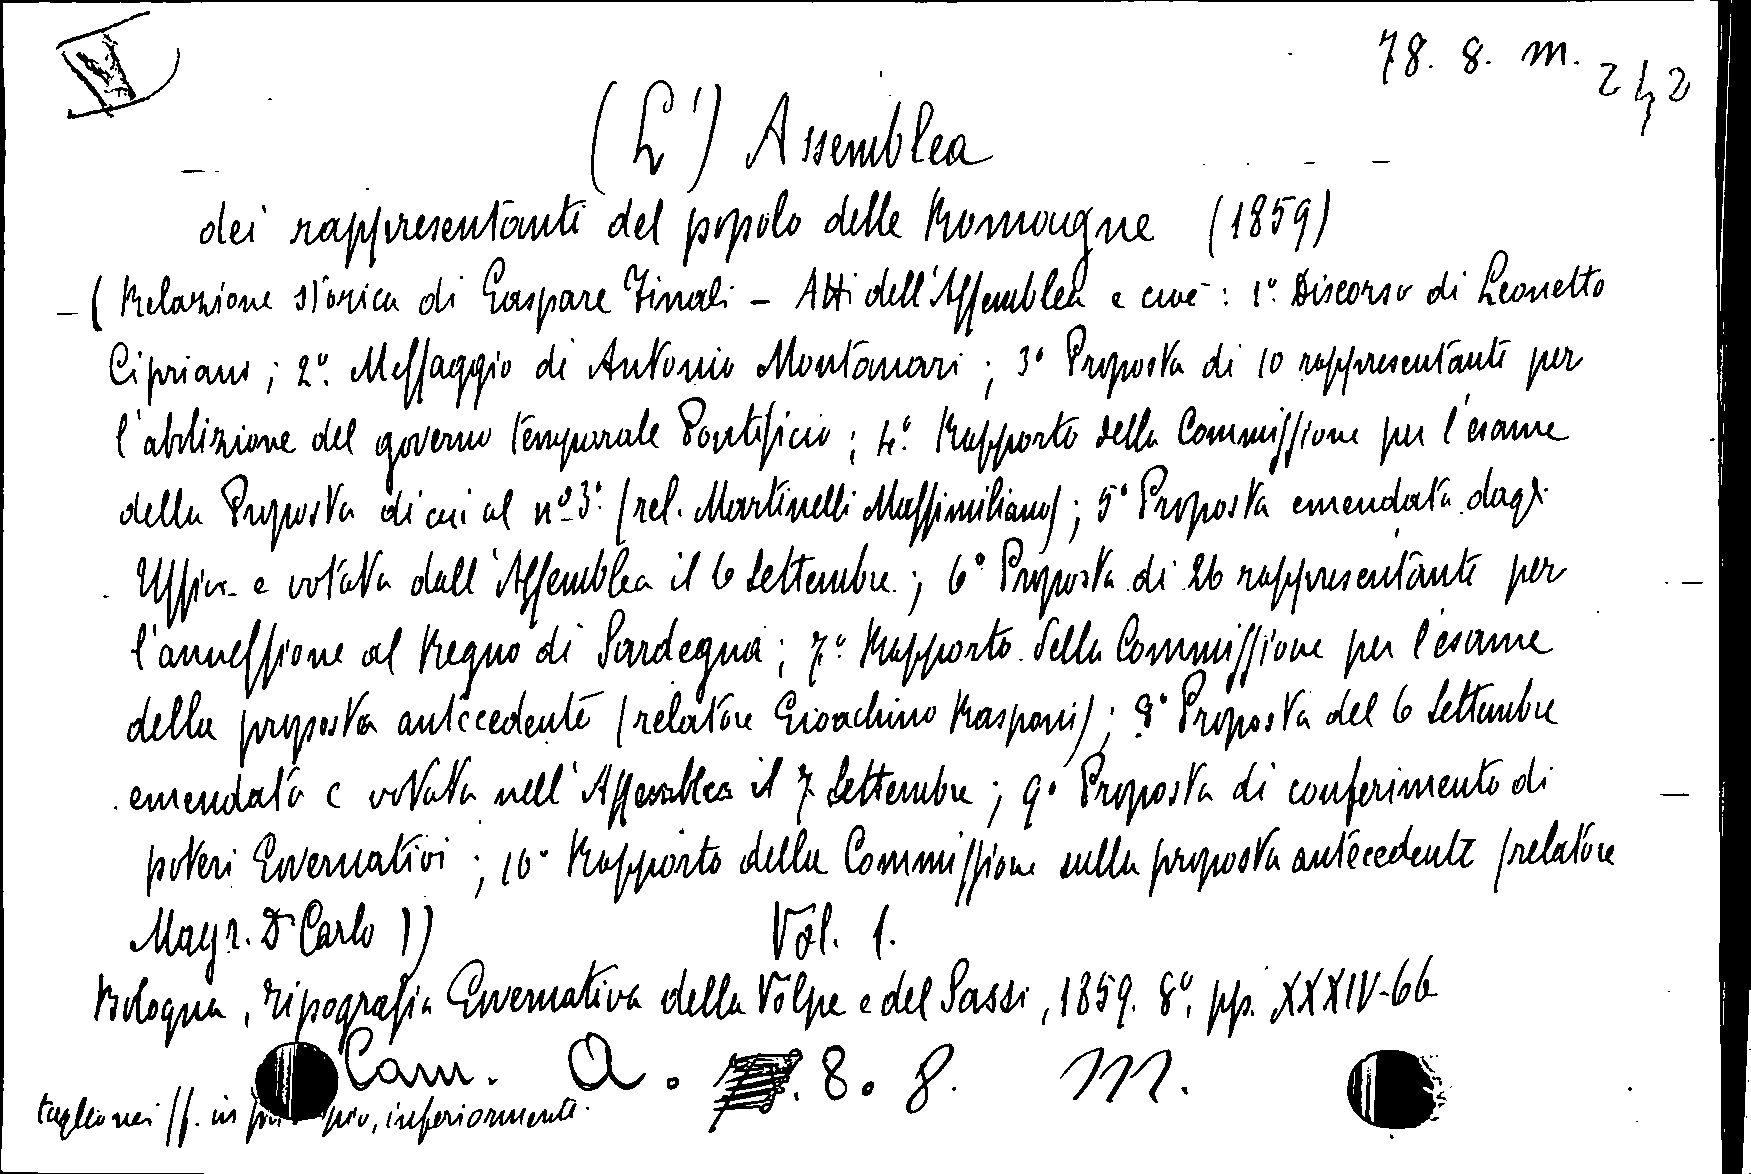 V
78. 8. m. 242
(L') Assemblea
dei rappresentanti del popolo delle Romagne (1859)
(Relazione storica di Gaspare Finali - Atti dell'Assemblea e cioè: 1º. Discorso di Leonetto
Cipriani; 2º. Messaggio di Antonio Montanari; 3º Proposta di 10 rappresentanti per
l'abolizione del governo temporale Pontificio; 4º. Rapporto della Commissione per l'esame
della Proposta di cui al nº 3º (rel. Martinelli Massimiliano); 5º Proposta emendata dagli
Uffici e votata dall'Assemblea il 6 Settembre; 6º Proposta di 26 rappresentanti per
l'annessione al Regno di Sardegna; 7º Rapporto della Commissione per l'esame
della proposta antecedente (relatore Gioachino Rasponi); 8º Proposta del 6 Settembre
emendata e votata nell'Assemblea il 7 Settembre; 9º Proposta di conferimento di
poteri Governativi; 10º Rapporto della Commissione sulla proposta antecedente (relatore
Mayr. Dr Carlo )) Vol. 1.
Bologna, Tipografia Governativa della Volpe e del Sassi, 1859. 8º, pp. XXXIV-66
Cam. A. 8. 8. m.
taglio nei ff. in inferiormente.